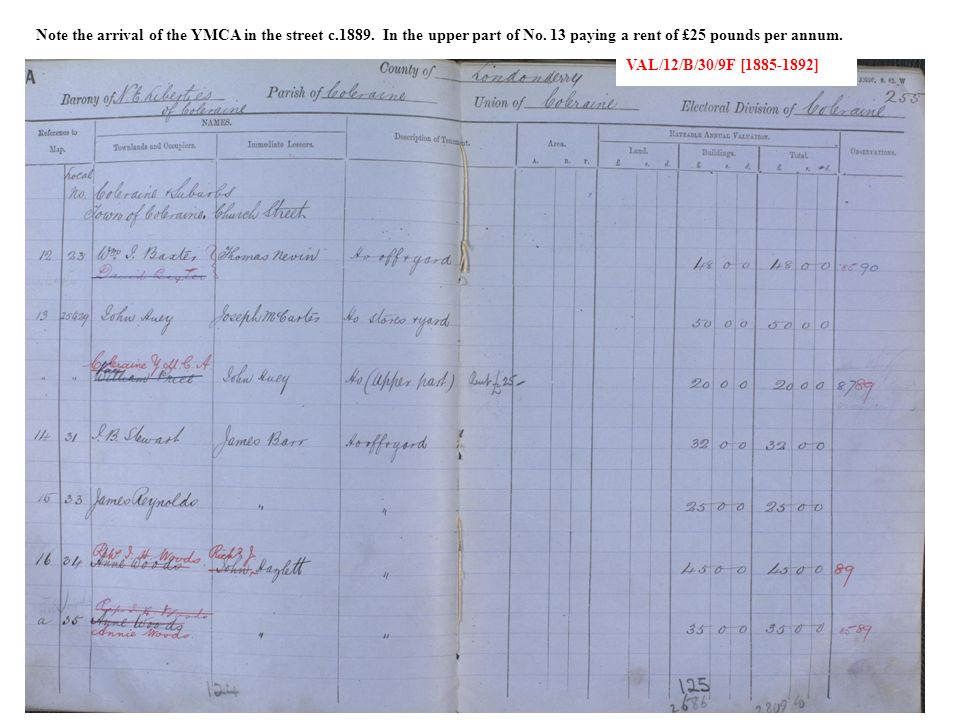 Note the arrival of the YMCA in the street c.1889. In the upper part of No. 13 paying a rent of £25 pounds per annum.
VAL/12/B/30/9F [1885-1892]
A County of Londonderry 255
Barony of N E Liberties of Coleraine Parish of Coleraine Union of Coleraine Electoral Division of Coleraine
Reference to Map. NAMES. Description of Tenement. Area. RATEABLE ANNUAL VALUATION. OBSERVATIONS.
Townlands and Occupiers. Immediate Lessors. A. R. P. Land. Buildings. Total.
£ s. d. £ s. d. £ s. d.
Local No. Coleraine & Suburbs
Town of Coleraine. Church Street
12 23 Wm. J. Baxter Thomas Nevin Ho off & yard 48 0 0 48 0 0 85 90
David
13 John Huey Joseph McCarter Ho stores & yard 50 0 0 50 0 0
Coleraine Y M C A
" " William Price John Huey Ho (Upper part) Rent £25- 20 0 0 20 0 0 87 89
14 31 J. B. Stewart James Barr Ho off & yard 32 0 0 32 0 0
15 33 James Reynolds " " 25 0 0 25 0 0
Woods
16 34 Anne Woods John Hazlett " 45 0 0 45 0 0 89
a 35 Anne Woods " " 35 0 0 35 0 0 89
Annie Woods
124 125
2686